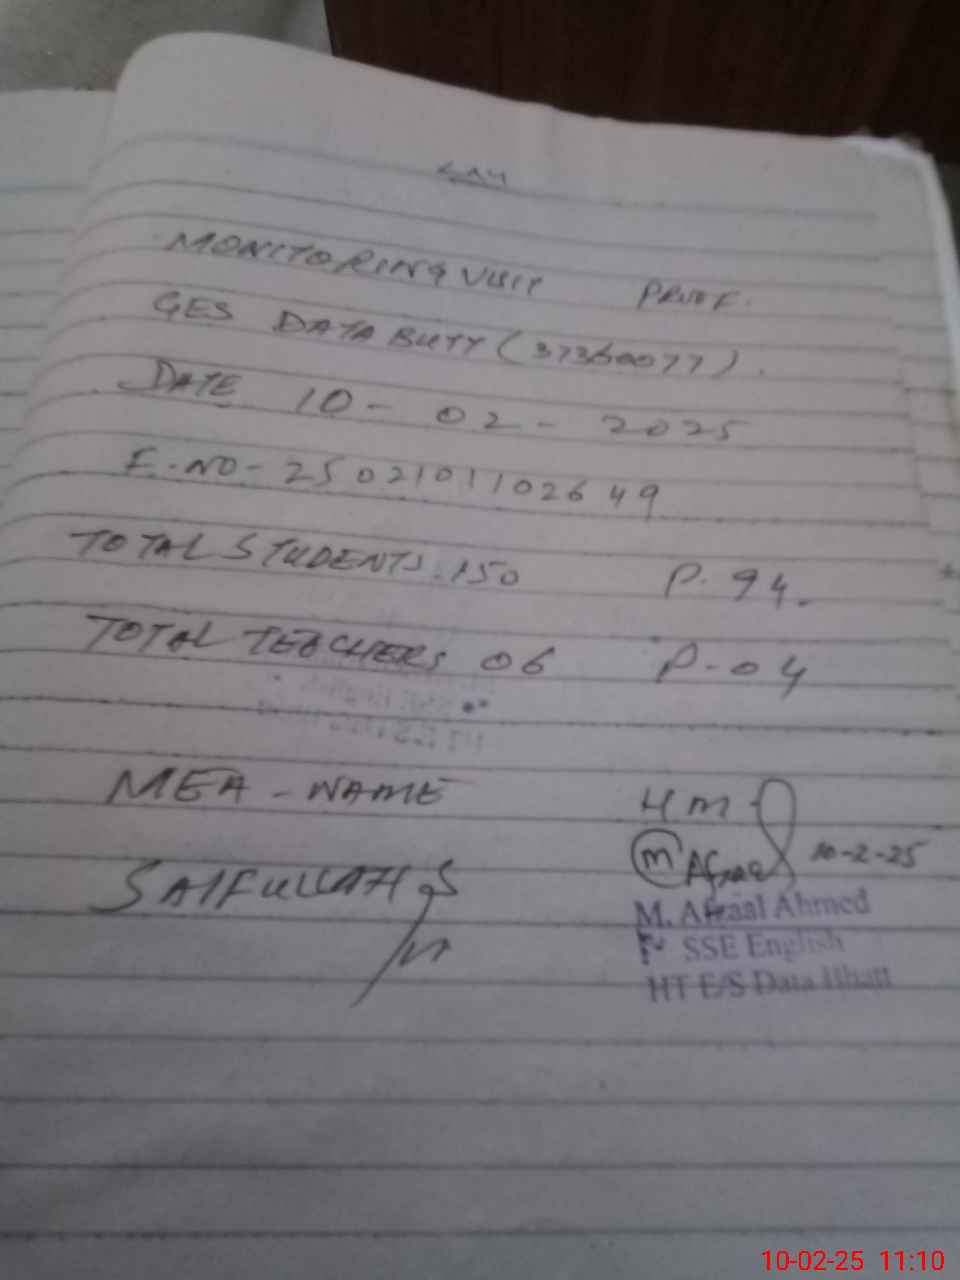 MONITORING VISIT PROOF.
GES DATA BUTT (37360077).
DATE 10-02-2025
F.NO-25021011102649
TOTAL STUDENTS.150 P.94.
TOTAL TEACHERS 06 P-04
MEA-NAME HM
SAIFULLAH M Afraal 10-2-25
M. Afraal Ahmed
SSE English
HT E/S Data Bhatt
10-02-25 11:10